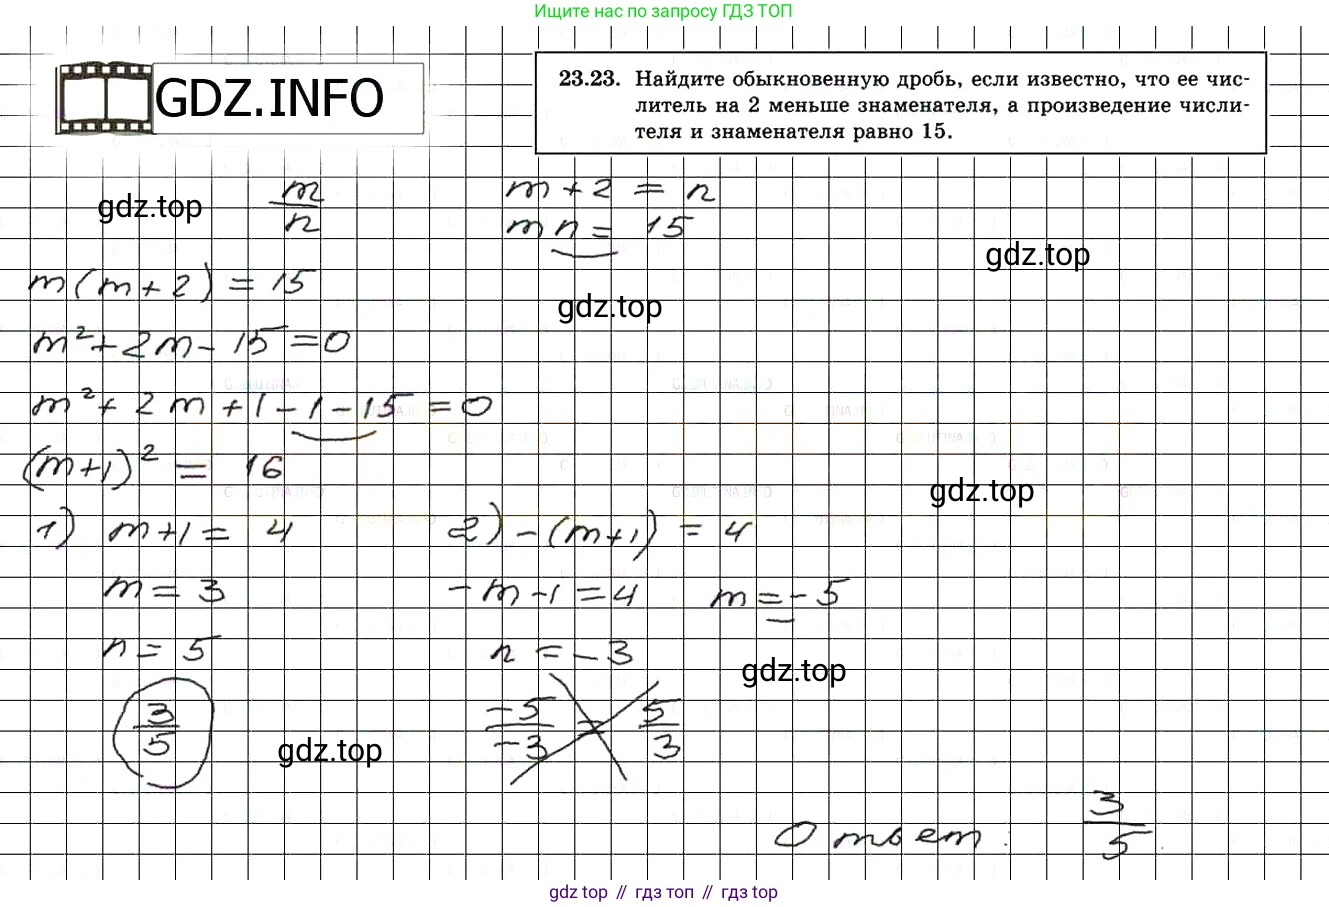 Ищите нас по запросу ГДЗ ТОП
GDZ.INFO
23.23. Найдите обыкновенную дробь, если известно, что ее чис-
литель на 2 меньше знаменателя, а произведение числи-
теля и знаменателя равно 15.
gdz.top
m/n
m + 2 = n
mn = 15
gdz.top
m(m+2) = 15
gdz.top
m² + 2m - 15 = 0
m² + 2m + 1 - 1 - 15 = 0
(m+1)² = 16
gdz.top
1) m+1 = 4
2) -(m+1) = 4
m = 3
-m-1 = 4
m = -5
n = 5
n = -3
gdz.top
3/5
-5/-3 = 5/3
gdz.top
Ответ: 3/5.
gdz top // гдз топ // gdz top